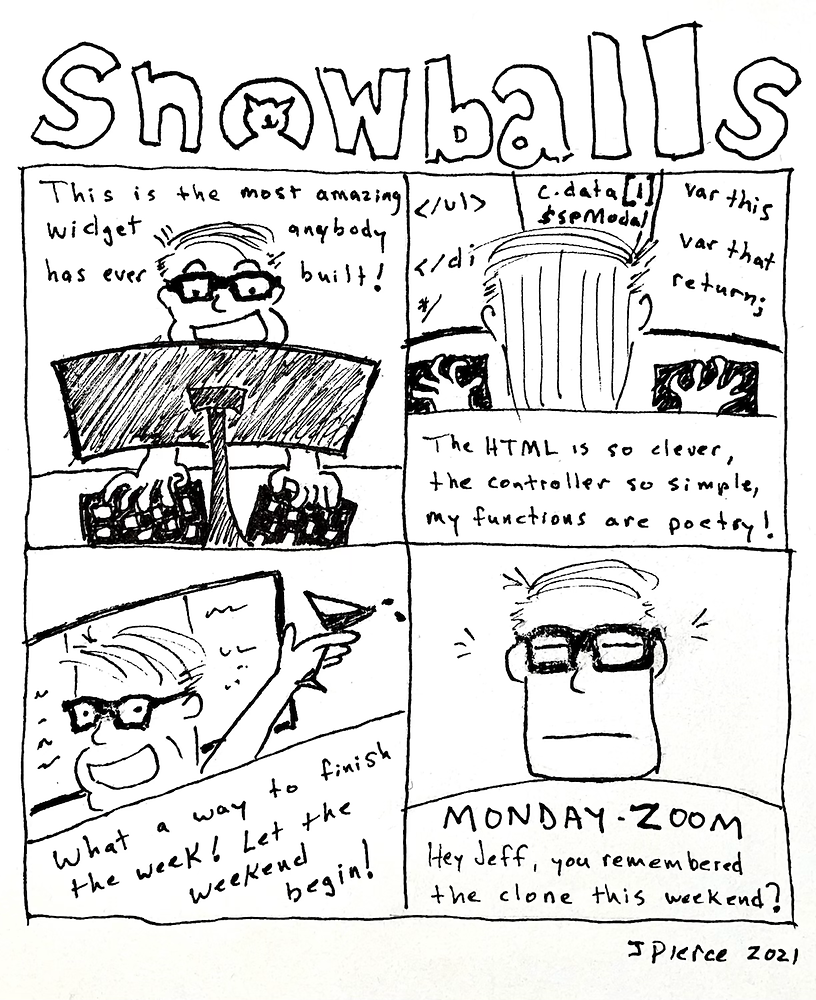 Snowballs
This is the most amazing
widget anybody
has ever built!
</ul>
</di
*/
c.data[1]
$spModal
var this
var that
return;
The HTML is so clever,
the controller so simple,
my functions are poetry!
What a way to finish
the week! Let the
weekend
begin!
MONDAY-ZOOM
Hey Jeff, you remembered
the clone this weekend?
J Pierce 2021